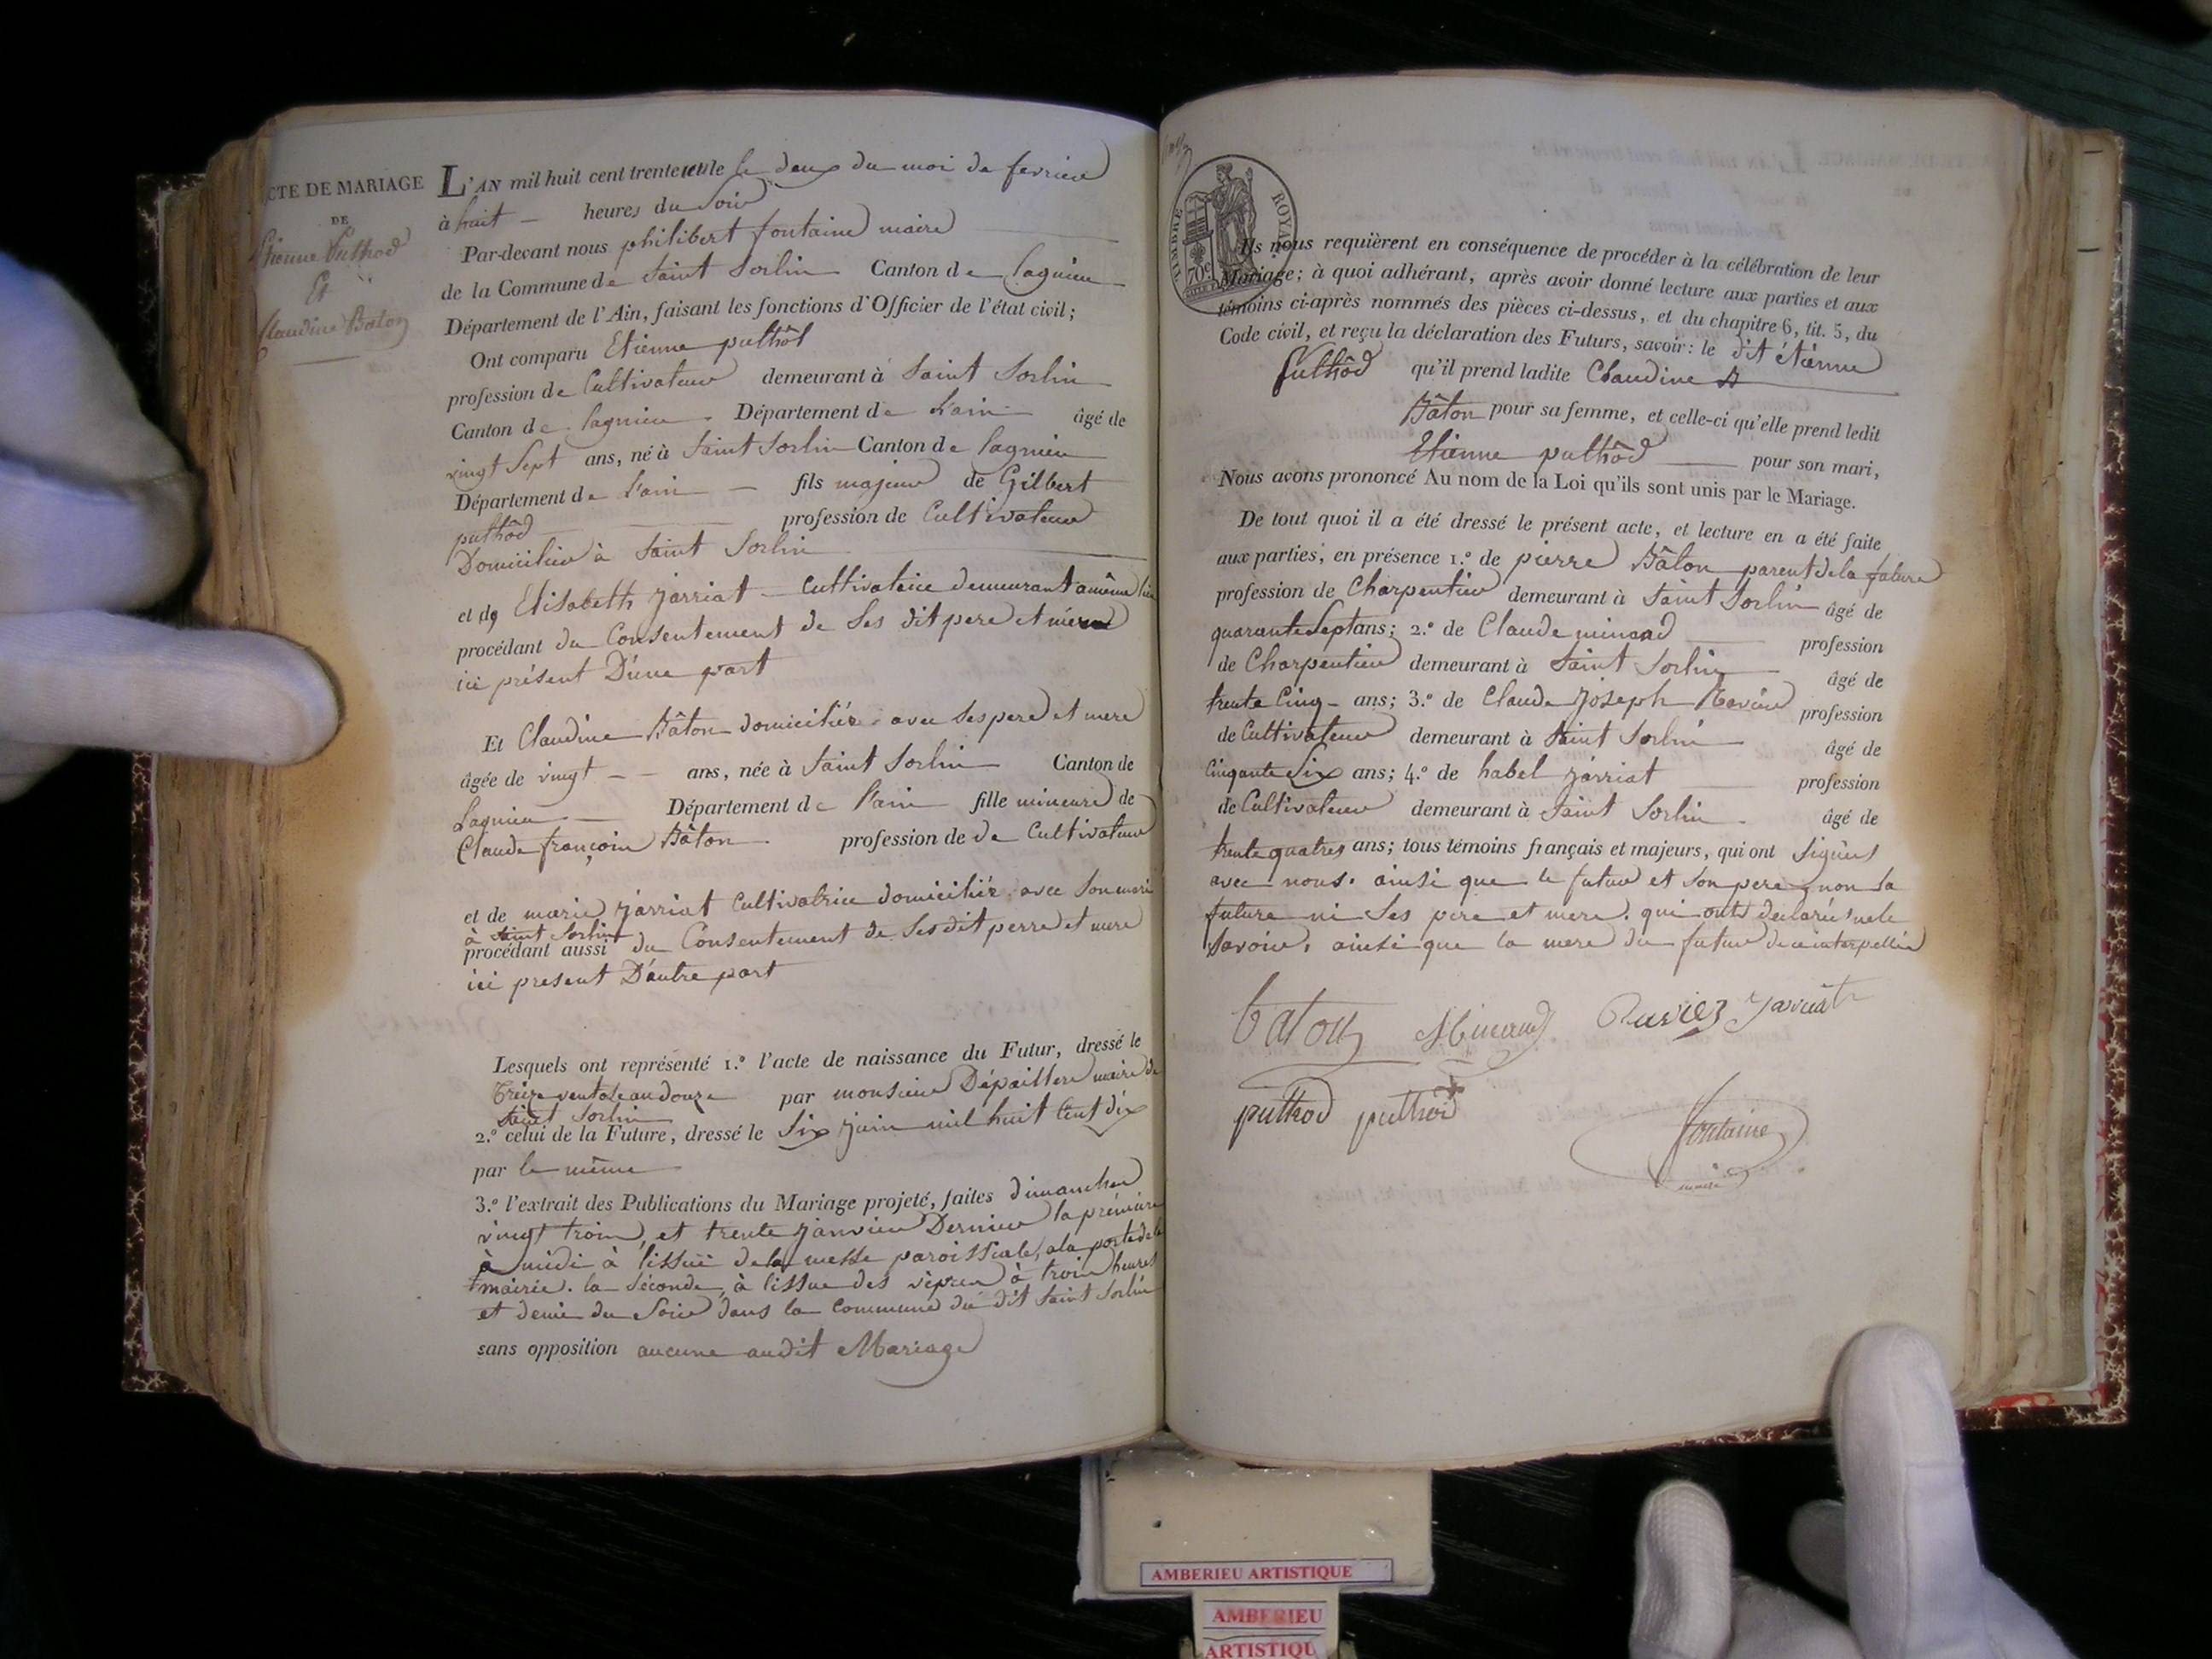 ACTE DE MARIAGE
DE
Etienne Puthod
Et
Claudine Bâton
L'AN mil huit cent trente et un le deux du moi de fevrier
à huit — heures du Soir
Par-devant nous philibert fontaine maire
de la Commune de Saint Sorlin Canton de lagnieu
Département de l'Ain, faisant les fonctions d'Officier de l'état civil;
Ont comparu Etienne puthod
profession de Cultivateur demeurant à Saint Sorlin
Canton de lagnieu Département de L'ain âgé de
vingt Sept ans, né à Saint Sorlin Canton de lagnieu
Département de L'ain — fils majeur de Gilbert
puthôd profession de Cultivateur
Domicilié à Saint Sorlin
et de Elisabeth jarriat Cultivatrice demeurant a même lieu
procédant du Consentement de Ses dit pere et mere
ici présent D'une part
Et Claudine Bâton domiciliée avec Ses pere et mere
âgée de vingt — — ans, née à Saint Sorlin Canton de
Lagnieu — Département de l'ain fille mineure de
Claude françois Bâton profession de de Cultivateur
et de marie jarriat Cultivatrice domiciliée avec Son mari
à Saint Sorlin
procédant aussi du Consentement de Ses dit perre et mere
ici present D'autre part
Lesquels ont représenté 1.º l'acte de naissance du Futur, dressé le
treize ventose an douze par monsieur Dépaillere maire de
Saint Sorlin
2.º celui de la Future, dressé le Six juin mil huit Cent dix
par le même
3.º l'extrait des Publications du Mariage projeté, faites dimanches
vingt trois, et trente janvier Dernier la première
à midi à l'issue de la messe paroissiale, a la porte de la
mairie. la Séconde, à l'issue des vèpres à trois heures
et demie du Soir dans la Commune du dit Saint Sorlin
sans opposition aucune audit Mariage
TIMBRE ROYAL
70c.
Ils nous requièrent en conséquence de procéder à la célébration de leur
Mariage; à quoi adhérant, après avoir donné lecture aux parties et aux
témoins ci-après nommés des pièces ci-dessus, et du chapitre 6, tit. 5, du
Code civil, et reçu la déclaration des Futurs, savoir: le dit étienne
Puthôd qu'il prend ladite Claudine
Bâton pour sa femme, et celle-ci qu'elle prend ledit
Etienne puthôd pour son mari,
Nous avons prononcé Au nom de la Loi qu'ils sont unis par le Mariage.
De tout quoi il a été dressé le présent acte, et lecture en a été faite
aux parties, en présence 1.º de pierre Bâton parent de la future
profession de Charpentier demeurant à Saint Sorlin âgé de
quarante Sept ans; 2.º de Claude minand profession
de Charpentier demeurant à Saint Sorlin âgé de
trente Cinq ans; 3.º de Claude Joseph Ravier profession
de Cultivateur demeurant à Saint Sorlin âgé de
Cinqante Six ans; 4.º de habel jarriat profession
de Cultivateur demeurant à Saint Sorlin âgé de
trente quatres ans; tous témoins français et majeurs, qui ont Signés
avec nous. ainsi que le futur et Son pere, non la
future ni Ses pere et mere. qui onts declarées ne le
Savoir, ainsi que la mere du futur de ce interpellée
baton Minand Ravier Jarriat
puthod puthod
fontaine
maire
AMBERIEU ARTISTIQUE
AMBERIEU
ARTISTIQU